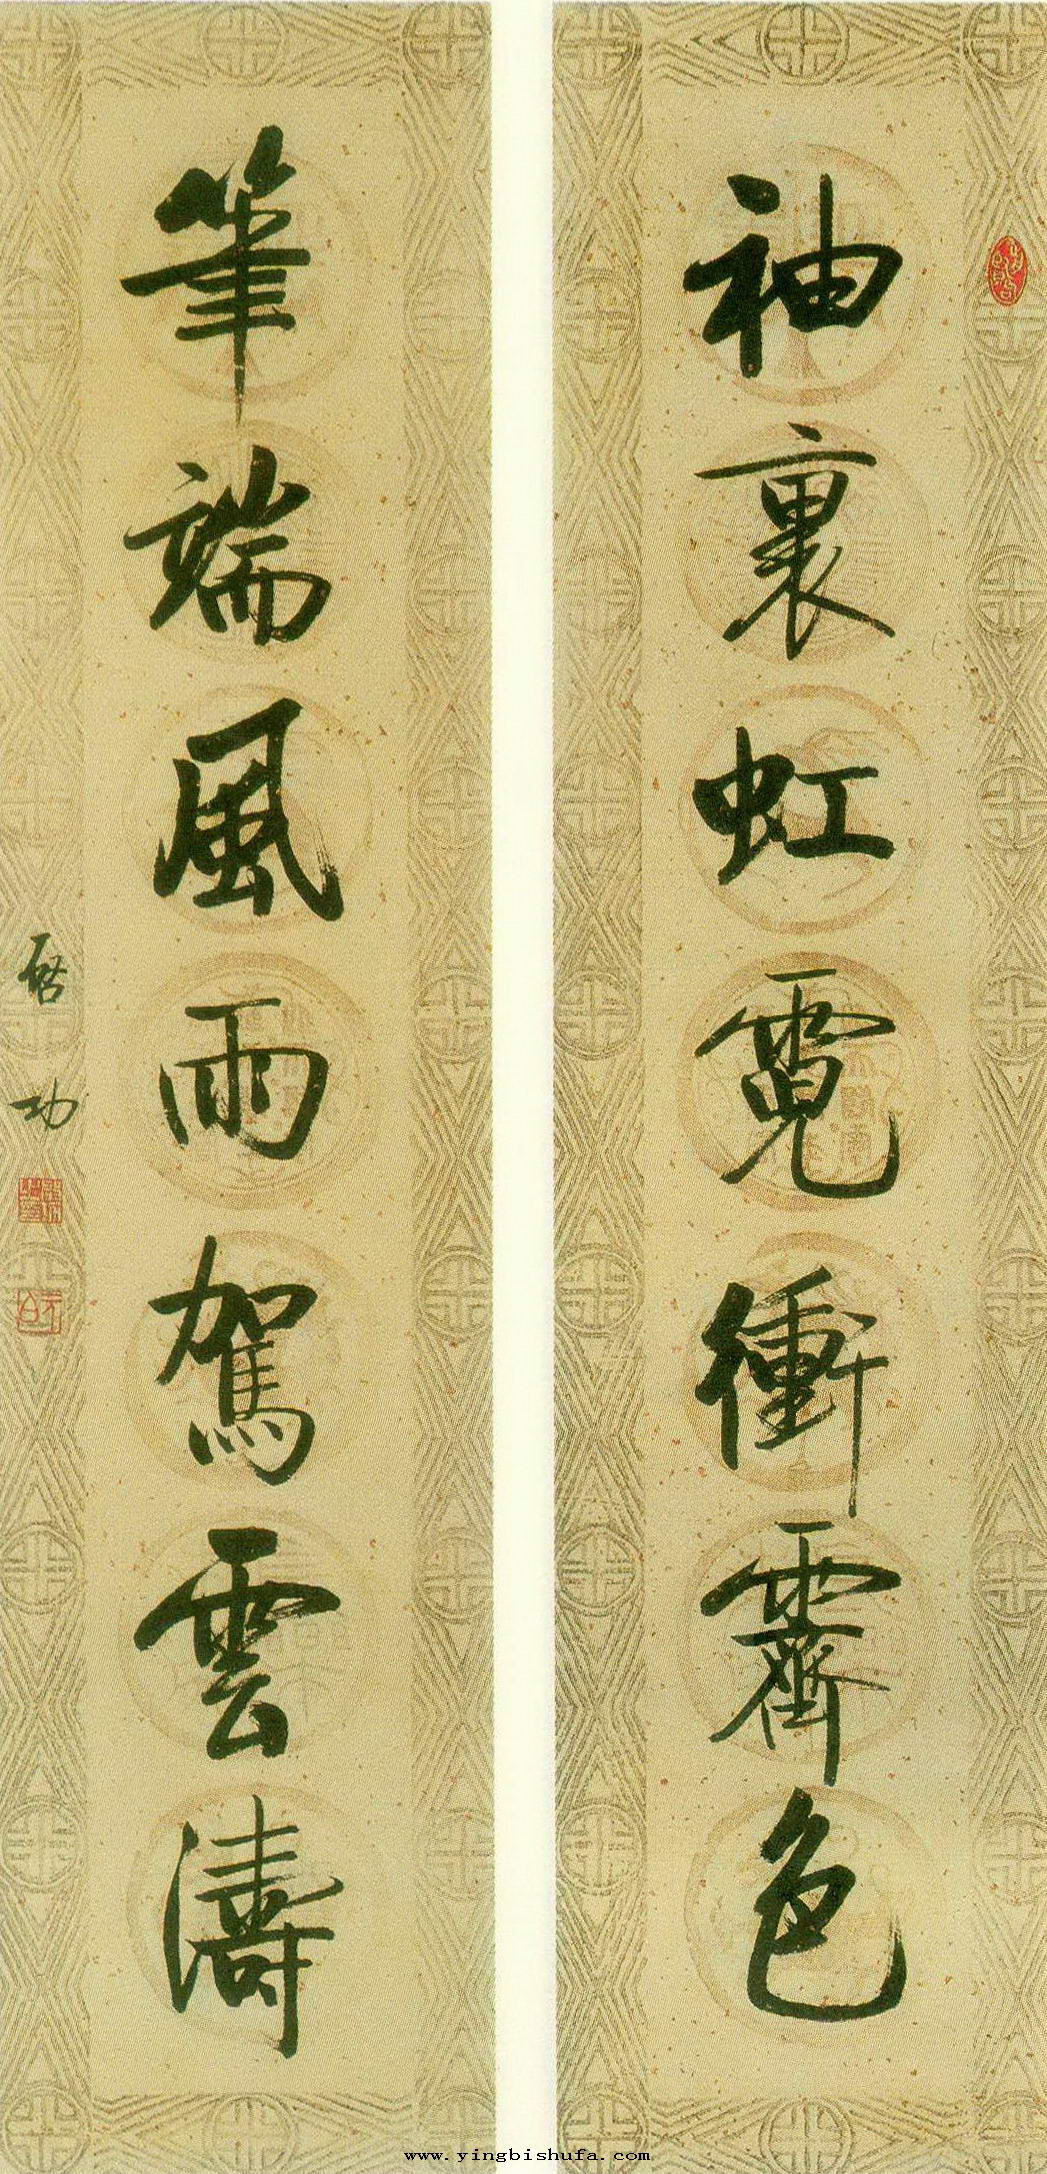 袖裏虹霓衝霽色
筆端風雨駕雲濤
啓功
www.yingbishufa.com